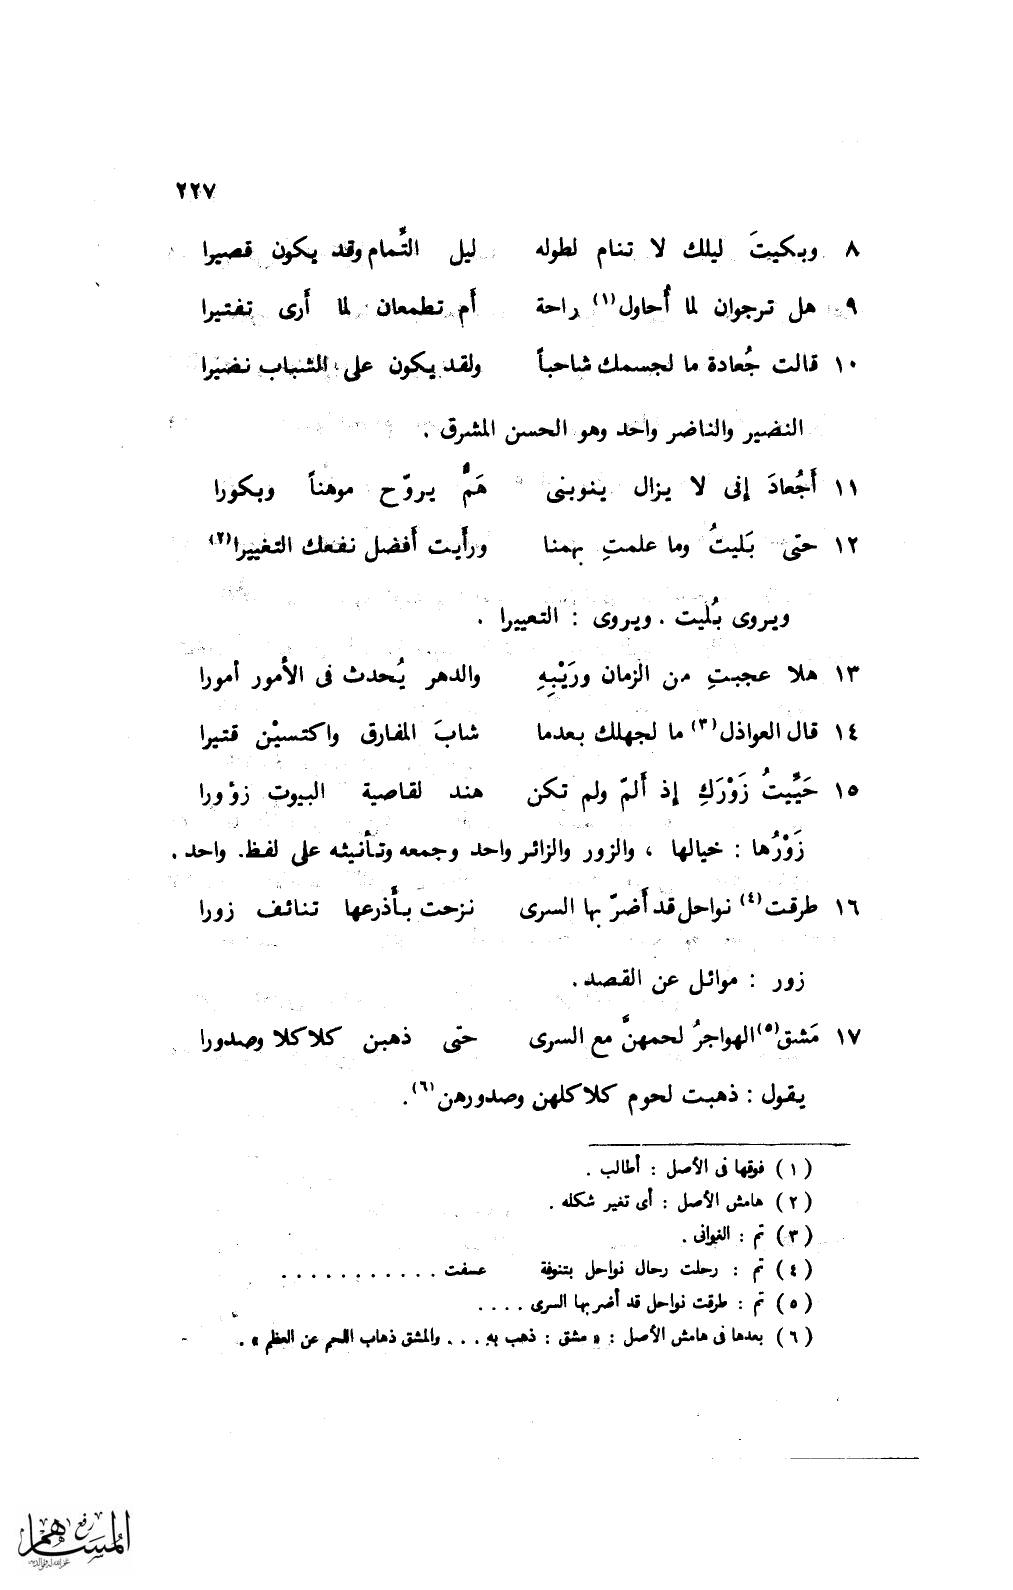 ٢٢٧
٨ وبكيتَ ليلك لا تنام لطوله ليل التِّمام وقد يكون قصيرا
٩ هل ترجوان لما أُحاول(١) راحة أم تطمعان لما أَرى تفتيرا
١٠ قالت جُعادة ما لجسمك شاحباً ولقد يكون على الشباب نضيرا
النضير والناضر واحد وهو الحسن المشرق .
١١ أَجُعادَ إنى لا يزال ينوبنى هَمٌّ يروّح موهناً وبكورا
١٢ حتى بَليتُ وما علمتِ بهمنا ورأَيت أَفضل نفعك التغييرا(٢)
ويروى بُليت . ويروى : التعييرا .
١٣ هلا عجبتِ من الزمان ورَيْبِهِ والدهر يُحدث فى الأُمور أمورا
١٤ قال العواذل(٣) ما لجهلك بعدما شابَ المفارق واكتسيْن قتيرا
١٥ حَيَّيتُ زَوْرَكِ إذ أَلمّ ولم تكن هند لقاصية البيوت زؤورا
زَوْرُها : خيالها ، والزور والزائر واحد وجمعه وتأنيثه على لفظ واحد .
١٦ طرقت(٤) نواحل قد أَضرّ بها السرى نزحت بأَذرعها تنائف زورا
زور : موائل عن القصد .
١٧ مَشق(٥) الهواجرُ لحمهنَّ مع السرى حتى ذهبن كلاكلا وصدورا
يقول : ذهبت لحوم كلاكلهن وصدورهن(٦) .
(١) فوقها فى الأصل : أطالب .
(٢) هامش الأصل : أى تغير شكله .
(٣) تم : الغوانى .
(٤) تم : رحلت رحال نواحل بتنوفة عسفت . . . . . . . . . . .
(٥) تم : طرقت نواحل قد أضر بها السرى . . . .
(٦) بعدها فى هامش الأصل : « مشق : ذهب به . . . والمشق ذهاب اللحم عن العظم » .